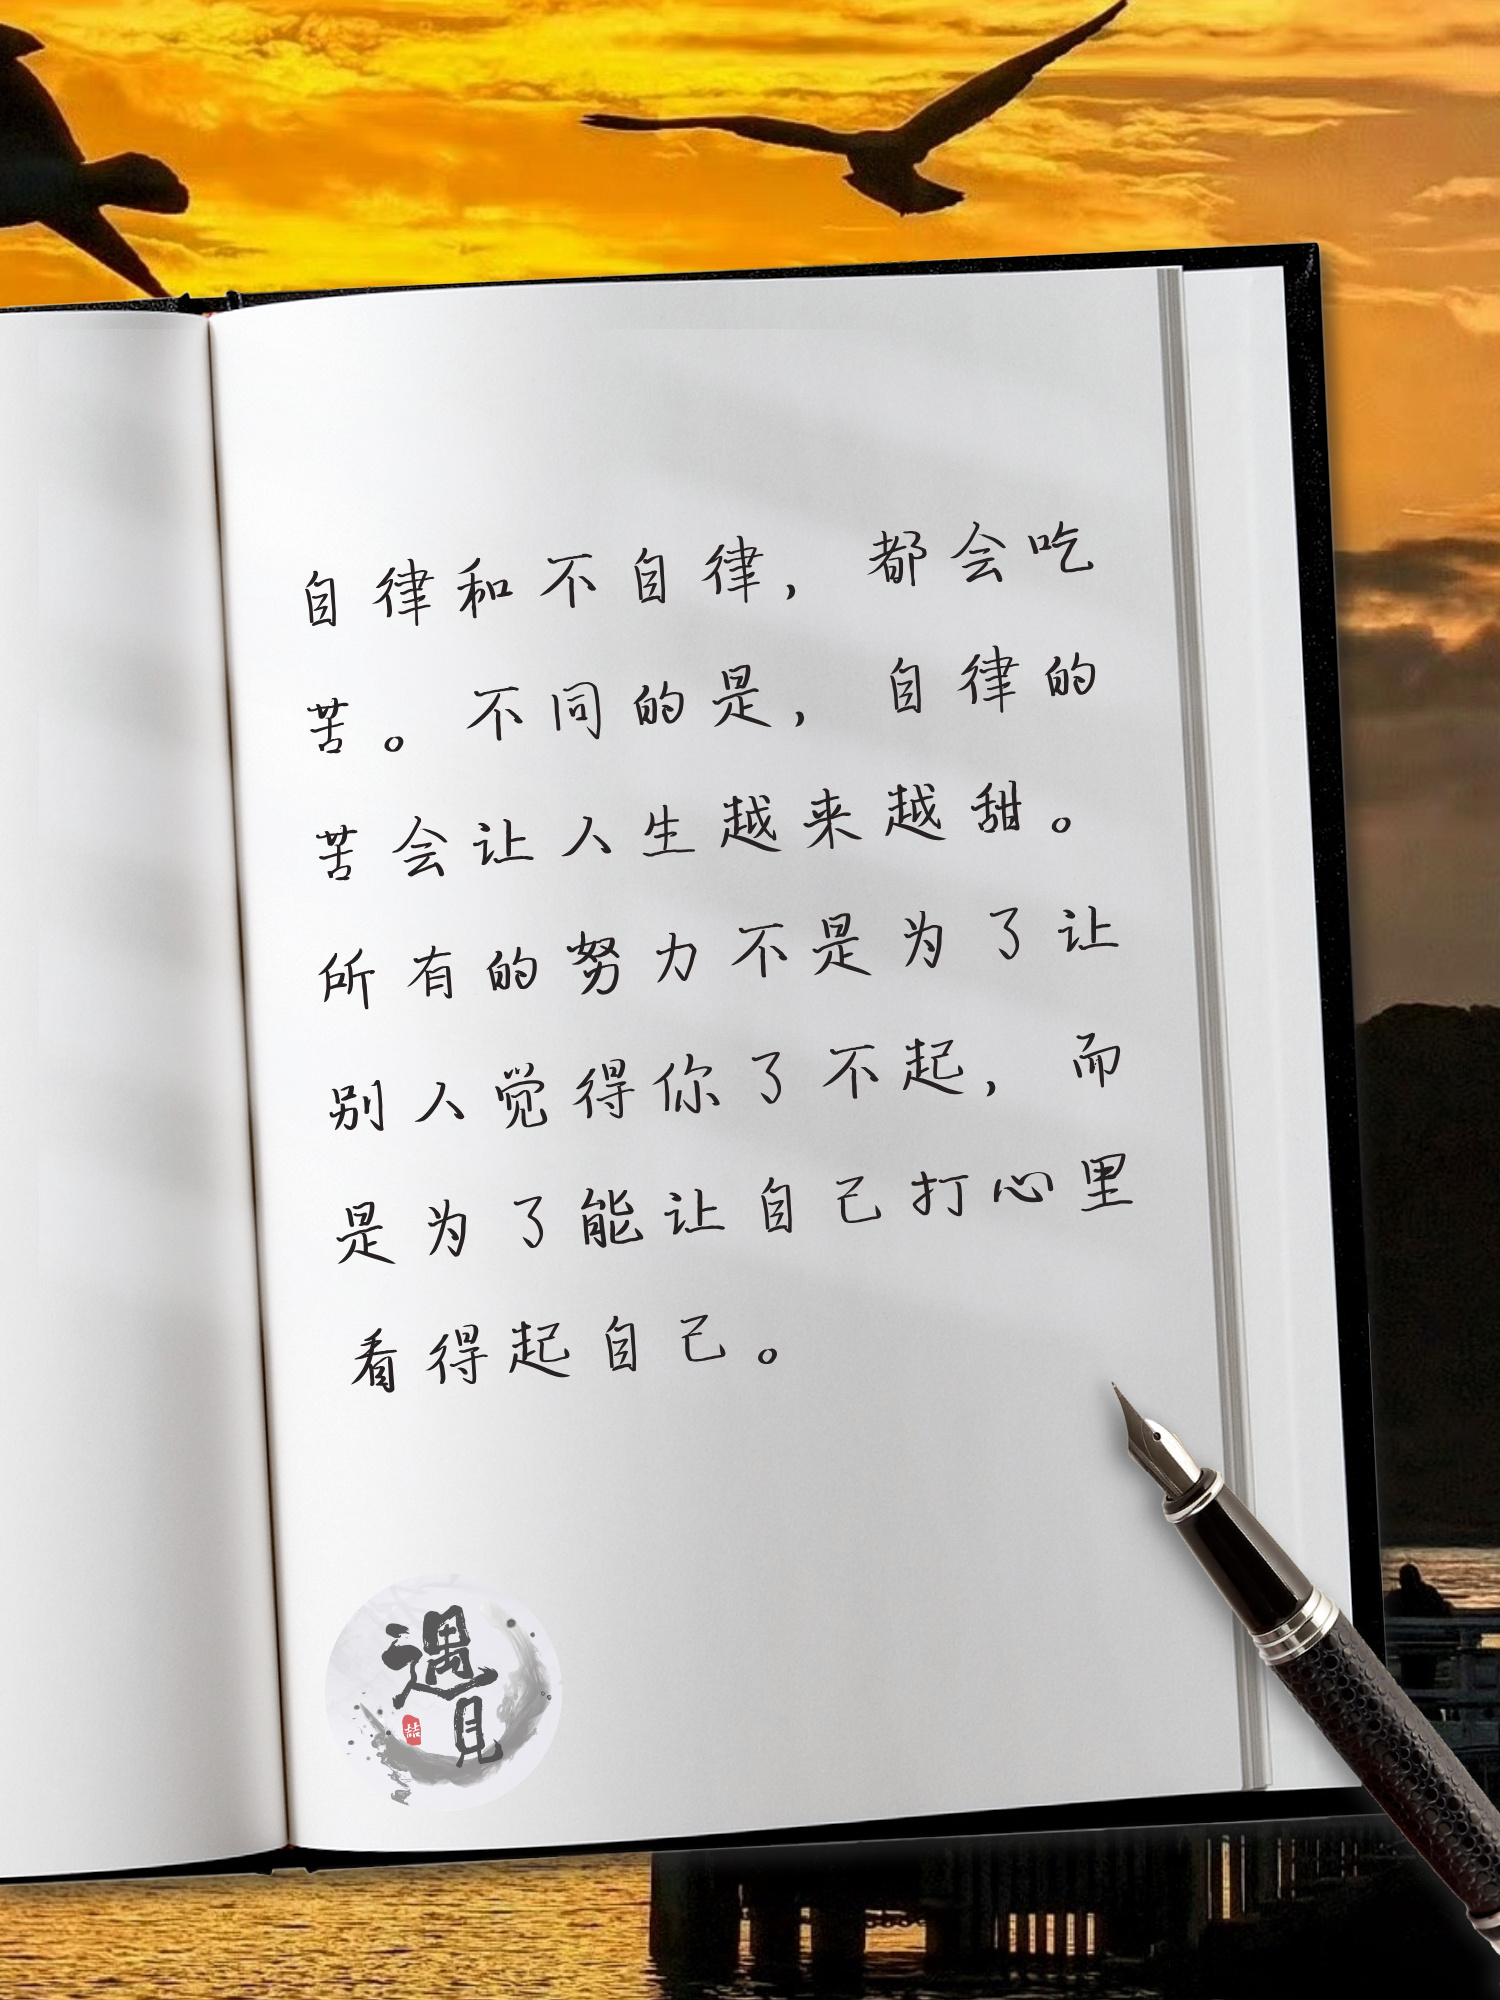 自律和不自律，都会吃
苦。不同的是，自律的
苦会让人生越来越甜。
所有的努力不是为了让
别人觉得你了不起，而
是为了能让自己打心里
看得起自己。
遇
見
喆